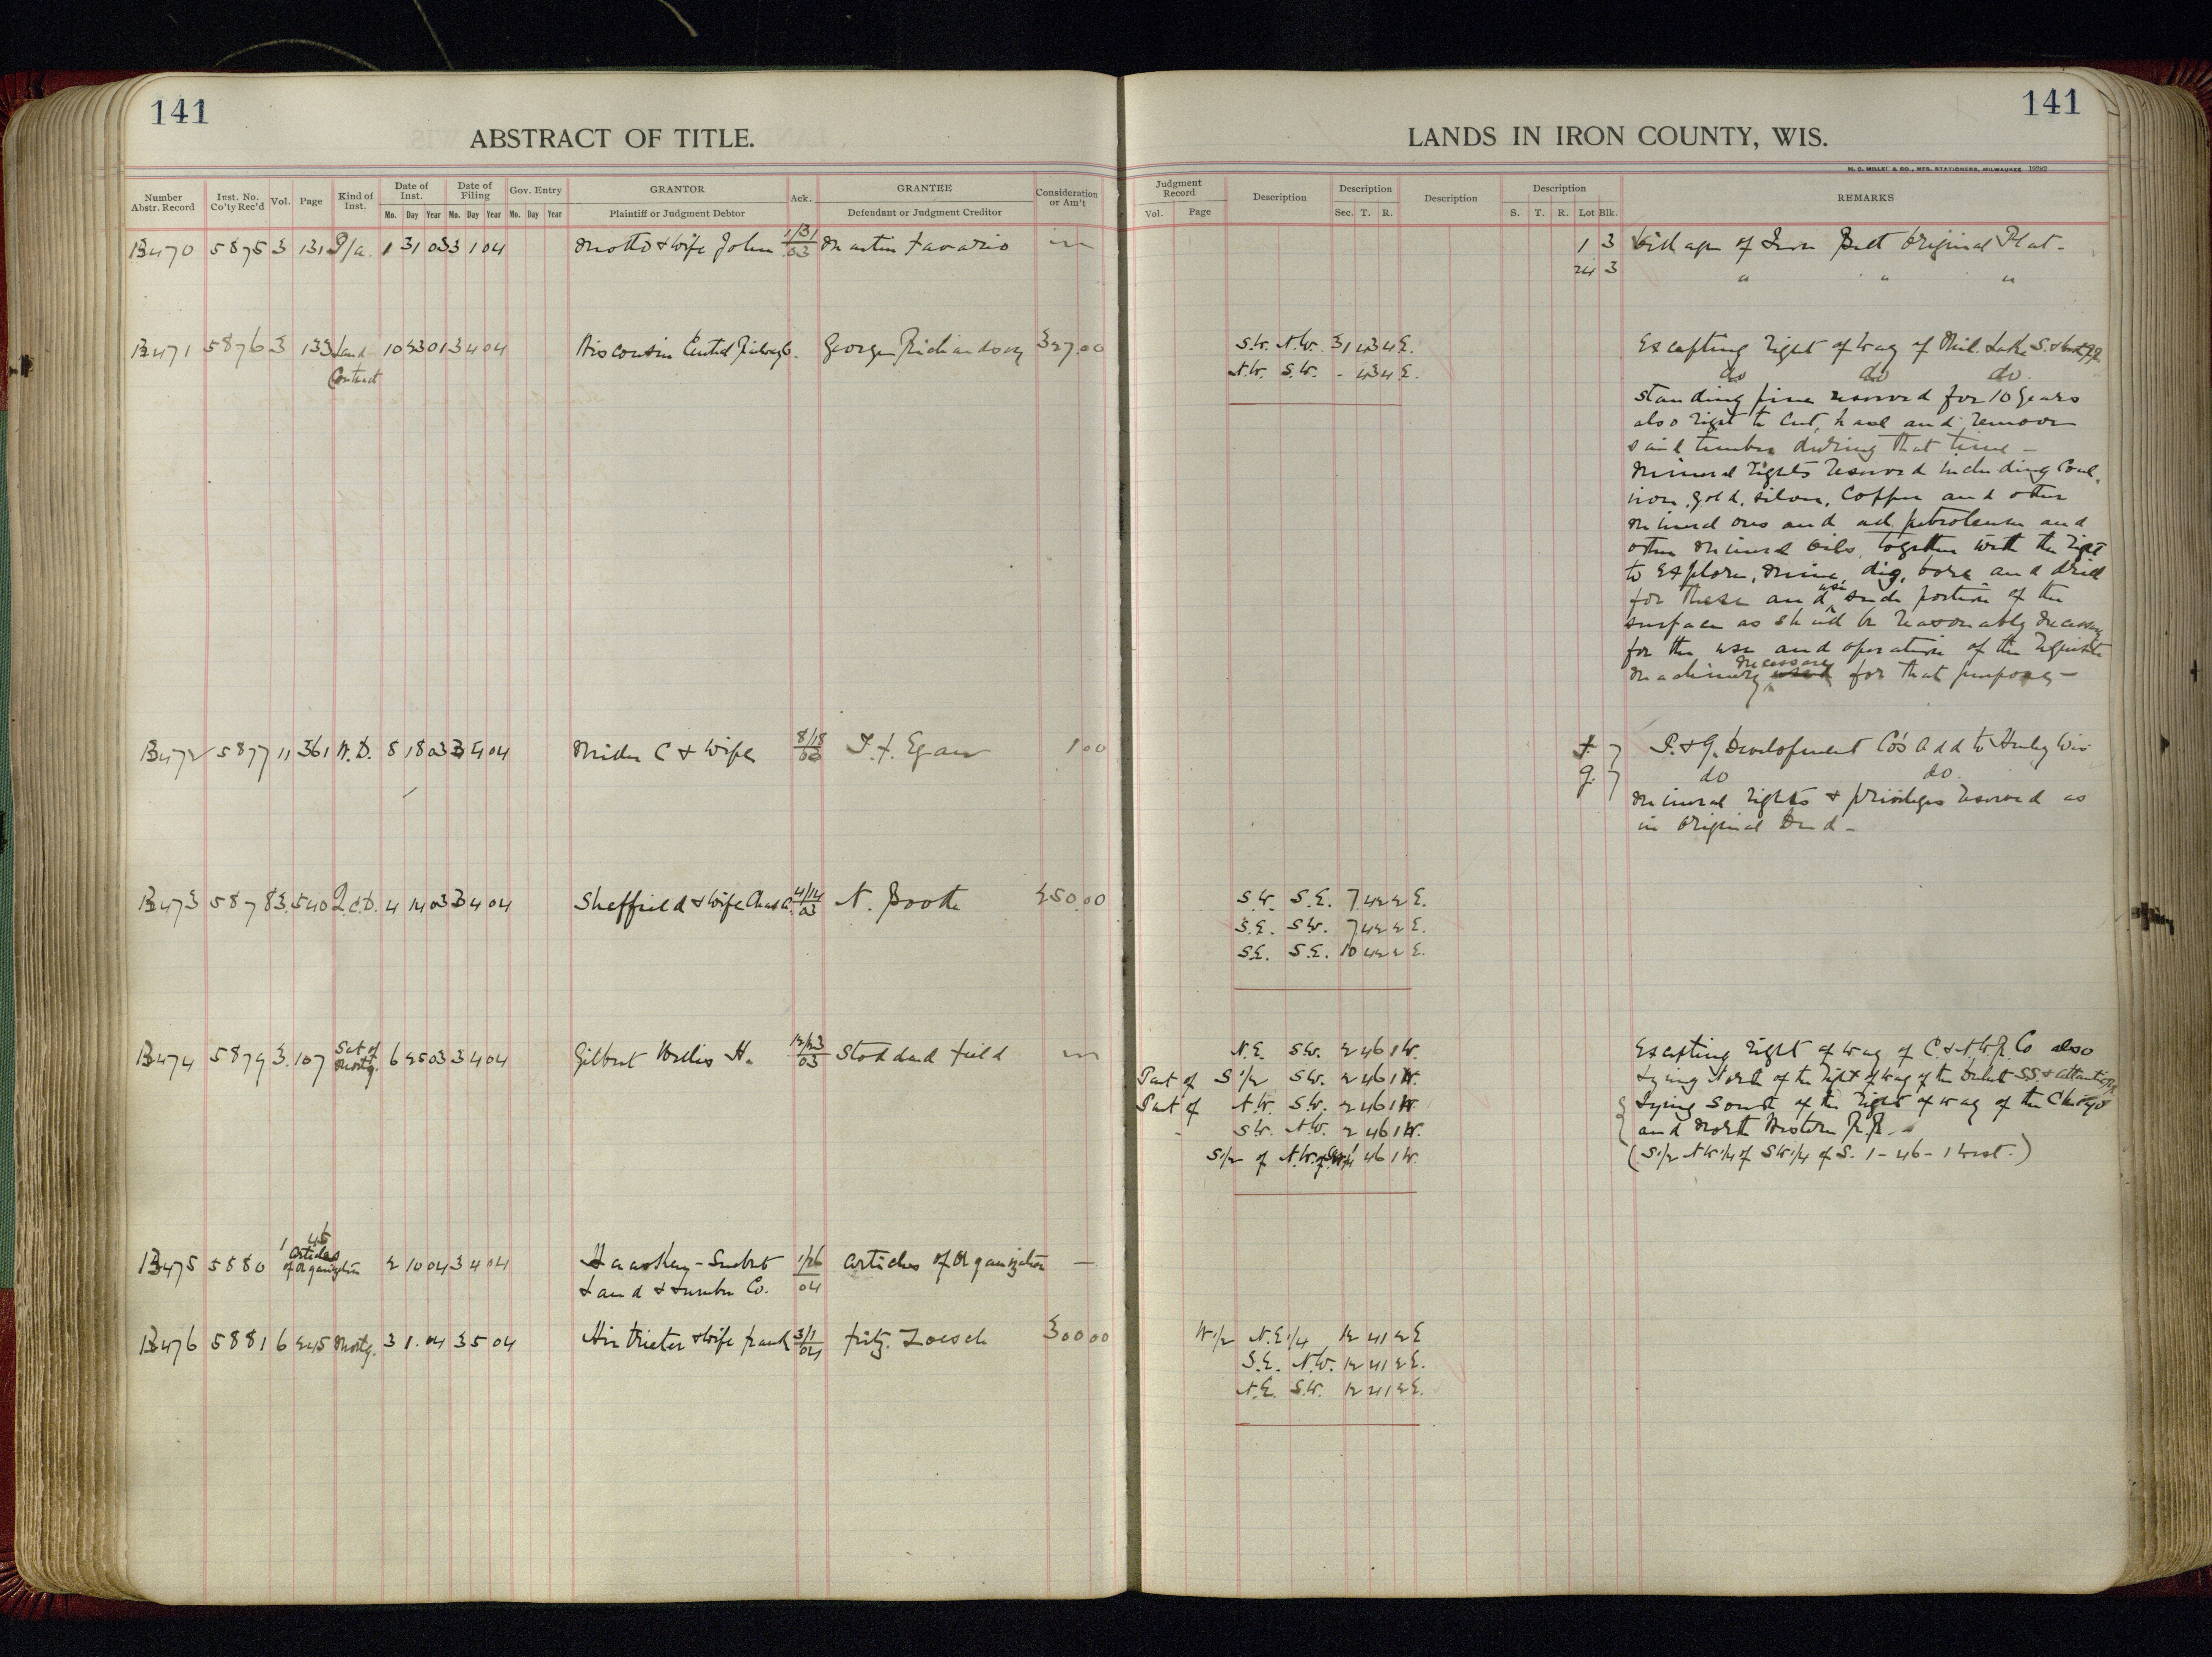 141
ABSTRACT OF TITLE.
Number Abstr. Record
Inst. No. Co'ty Rec'd
Vol.
Page
Kind of Inst.
Date of Inst.
Mo. Day Year
Date of Filing
Mo. Day Year
Gov. Entry
Mo. Day Year
GRANTOR
Plaintiff or Judgment Debtor
Ack.
GRANTEE
Defendant or Judgment Creditor
Consideration or Am't
B470 5875 3 131 P/a. 1 31 03 3 1 04 & Wife John 1/31/03 Martin
B471 5876 3 133 Land 10 23 01 3 4 04 Wisconsin Central Railway Co. George Richardson 327.00
Contract
B472 5877 11 361 W.D. 8 18 03 3 4 04 C & Wife 8/18/03 Egan 1 00
B473 5878 3. 540 Q.C.D. 4 14 03 3 4 04 Sheffield & Wife Chas A. 4/14/03 N. Boote 250.00
B474 5879 3. 107 Sat of Mortg. 6 25 03 3 4 04 Gilbert Willis H. 12/23/03 Stoddard Field
B475 5880 1 45 Articles of Organization 2 10 04 3 4 04 1/26/04 Articles of Organization —
Land & Lumber Co.
B476 5881 6 245 Mortg. 3 1. 04 3 5 04 & Wife Frank 3/1/04 Fritz Loesch 300 00
141
LANDS IN IRON COUNTY, WIS.
H. G. MILLER & CO., MFG. STATIONERS, MILWAUKEE
Judgment Record
Vol. Page
Description
Description
Sec. T. R.
Description
Description
S. T. R. Lot Blk.
REMARKS
1 3 Village of Iron Belt Original Plat.
24 3 " " "
S.W. N.W. 31 43 4 E. Excepting right of way of Mil. Lake S. & West R.R.
N.W. S.W. - 43 4 E. do do do.
standing pine reserved for 10 years
also right to cut, haul and remove
said timber during that time —
Mineral rights reserved including Coal,
iron, gold, silver, Copper and other
mineral ores and all petroleum and
other mineral oils, together with the right
to explore, mine, dig, bore and drill
for these and use such portion of the
surface as shall be reasonably necessary
for the use and operation of the requisite
machinery necessary for that purpose —
F. } P. & G. Development Co's Add to Hurley Wis
G. } do do.
Mineral rights & privileges reserved as
in Original Deed —
S.W. S.E. 7 42 2 E.
S.E. S.W. 7 42 2 E.
S.E. S.E. 10 42 2 E.
N.E. S.W. 2 46 1 W. Excepting right of way of C. & N.W.R. Co also
Part of S 1/2 S.W. 2 46 1 W. Lying North of the right of way of the Duluth S.S. & Atlantic R.R.
Part of N.W. S.W. 2 46 1 W. Lying South of the right of way of the Chicago
S.W. N.W. 2 46 1 W. and North Western R.R. —
S 1/2 of N.W. of SW 1/4 1 46 1 W. (S 1/2 NW 1/4 of SW 1/4 of S. 1 - 46 - 1 West.)
W 1/2 N.E. 1/4 12 41 2 E
S.E. N.W. 12 41 2 E.
N.E. S.W. 12 41 2 E.